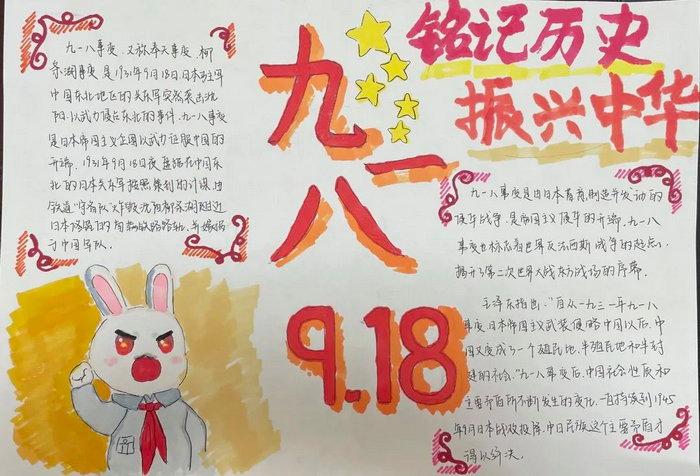 铭记历史
振兴中华
九一八
9.18
九一八事变,又称奉天事变、柳
条湖事变是1931年9月18日日本驻军
中国东北地区的关东军突然袭击沈
阳,以武力侵占东北的事件。九一八事变
是日本帝国主义企图以武力征服中国的
开端,1931年9月18日夜盘踞在中国东
北的日本关东军按照策划的计谋,由
铁道"守备队"炸毁沈阳柳条湖附近
日本修筑的南满铁路路轨,并嫁祸
于中国军队。
九一八事变是由日本蓄意制造并发动的
侵华战争,是帝国主义侵华的开端。九一八
事变也标志着世界反法西斯战争的起点,
揭开了第二次世界大战东方战场的序幕。
毛泽东指出:"自从一九三一年九一八
事变日本帝国主义武装侵略中国以后,中
国又变成了一个殖民地、半殖民地和半封
建的社会。"九一八事变后,中国社会性质和
主要矛盾所不断发生的变化,一直持续到1945
年9月日本战败投降,中日民族这个主要矛盾才
得以解决。